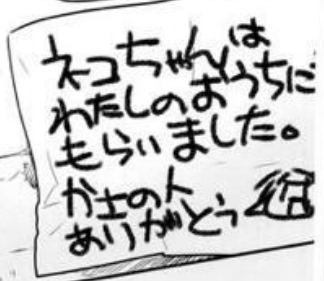 ネコちゃんは
わたしのおうちに
もらいました。
か士の人
ありがとう